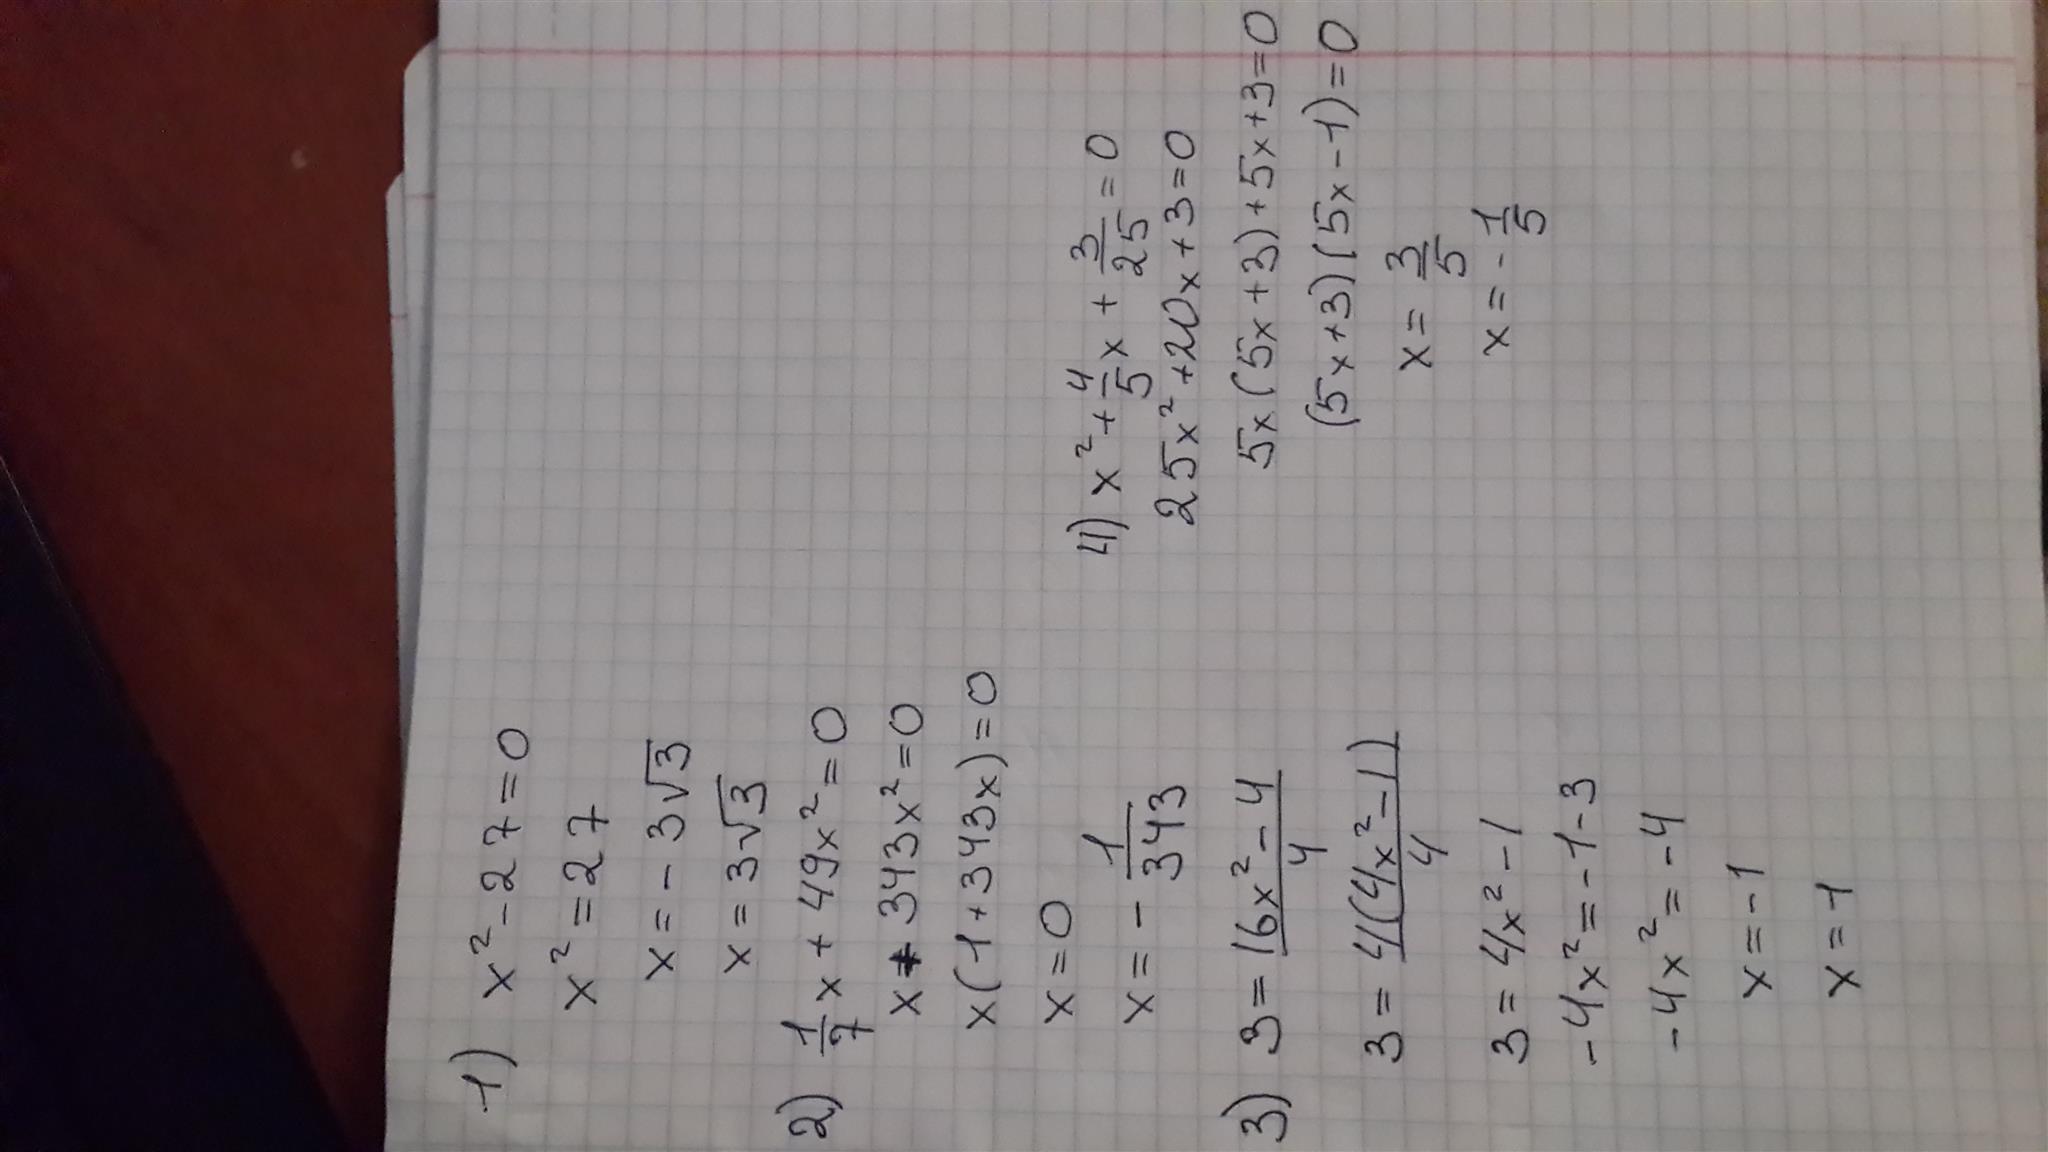 1) x² - 27 = 0
x² = 27
x = - 3√3
x = 3√3
2) 1/7 x + 49x² = 0
x + 343x² = 0
x(1 + 343x) = 0
x = 0
x = - 1/343
3) 3 = (16x² - 4)/4
3 = 4(4x² - 1)/4
3 = 4x² - 1
-4x² = -1 - 3
-4x² = -4
x = -1
x = 1
4) x² + 4/5 x + 3/25 = 0
25x² + 20x + 3 = 0
5x(5x + 3) + 5x + 3 = 0
(5x + 3)(5x - 1) = 0
x = 3/5
x = - 1/5